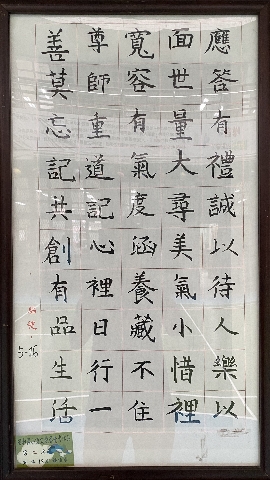 應答有禮誠以待人樂以
面世量大尋美氣小惜裡
寬容有氣度涵養藏不住
尊師重道記心裡日行一
善莫忘記共創有品生活